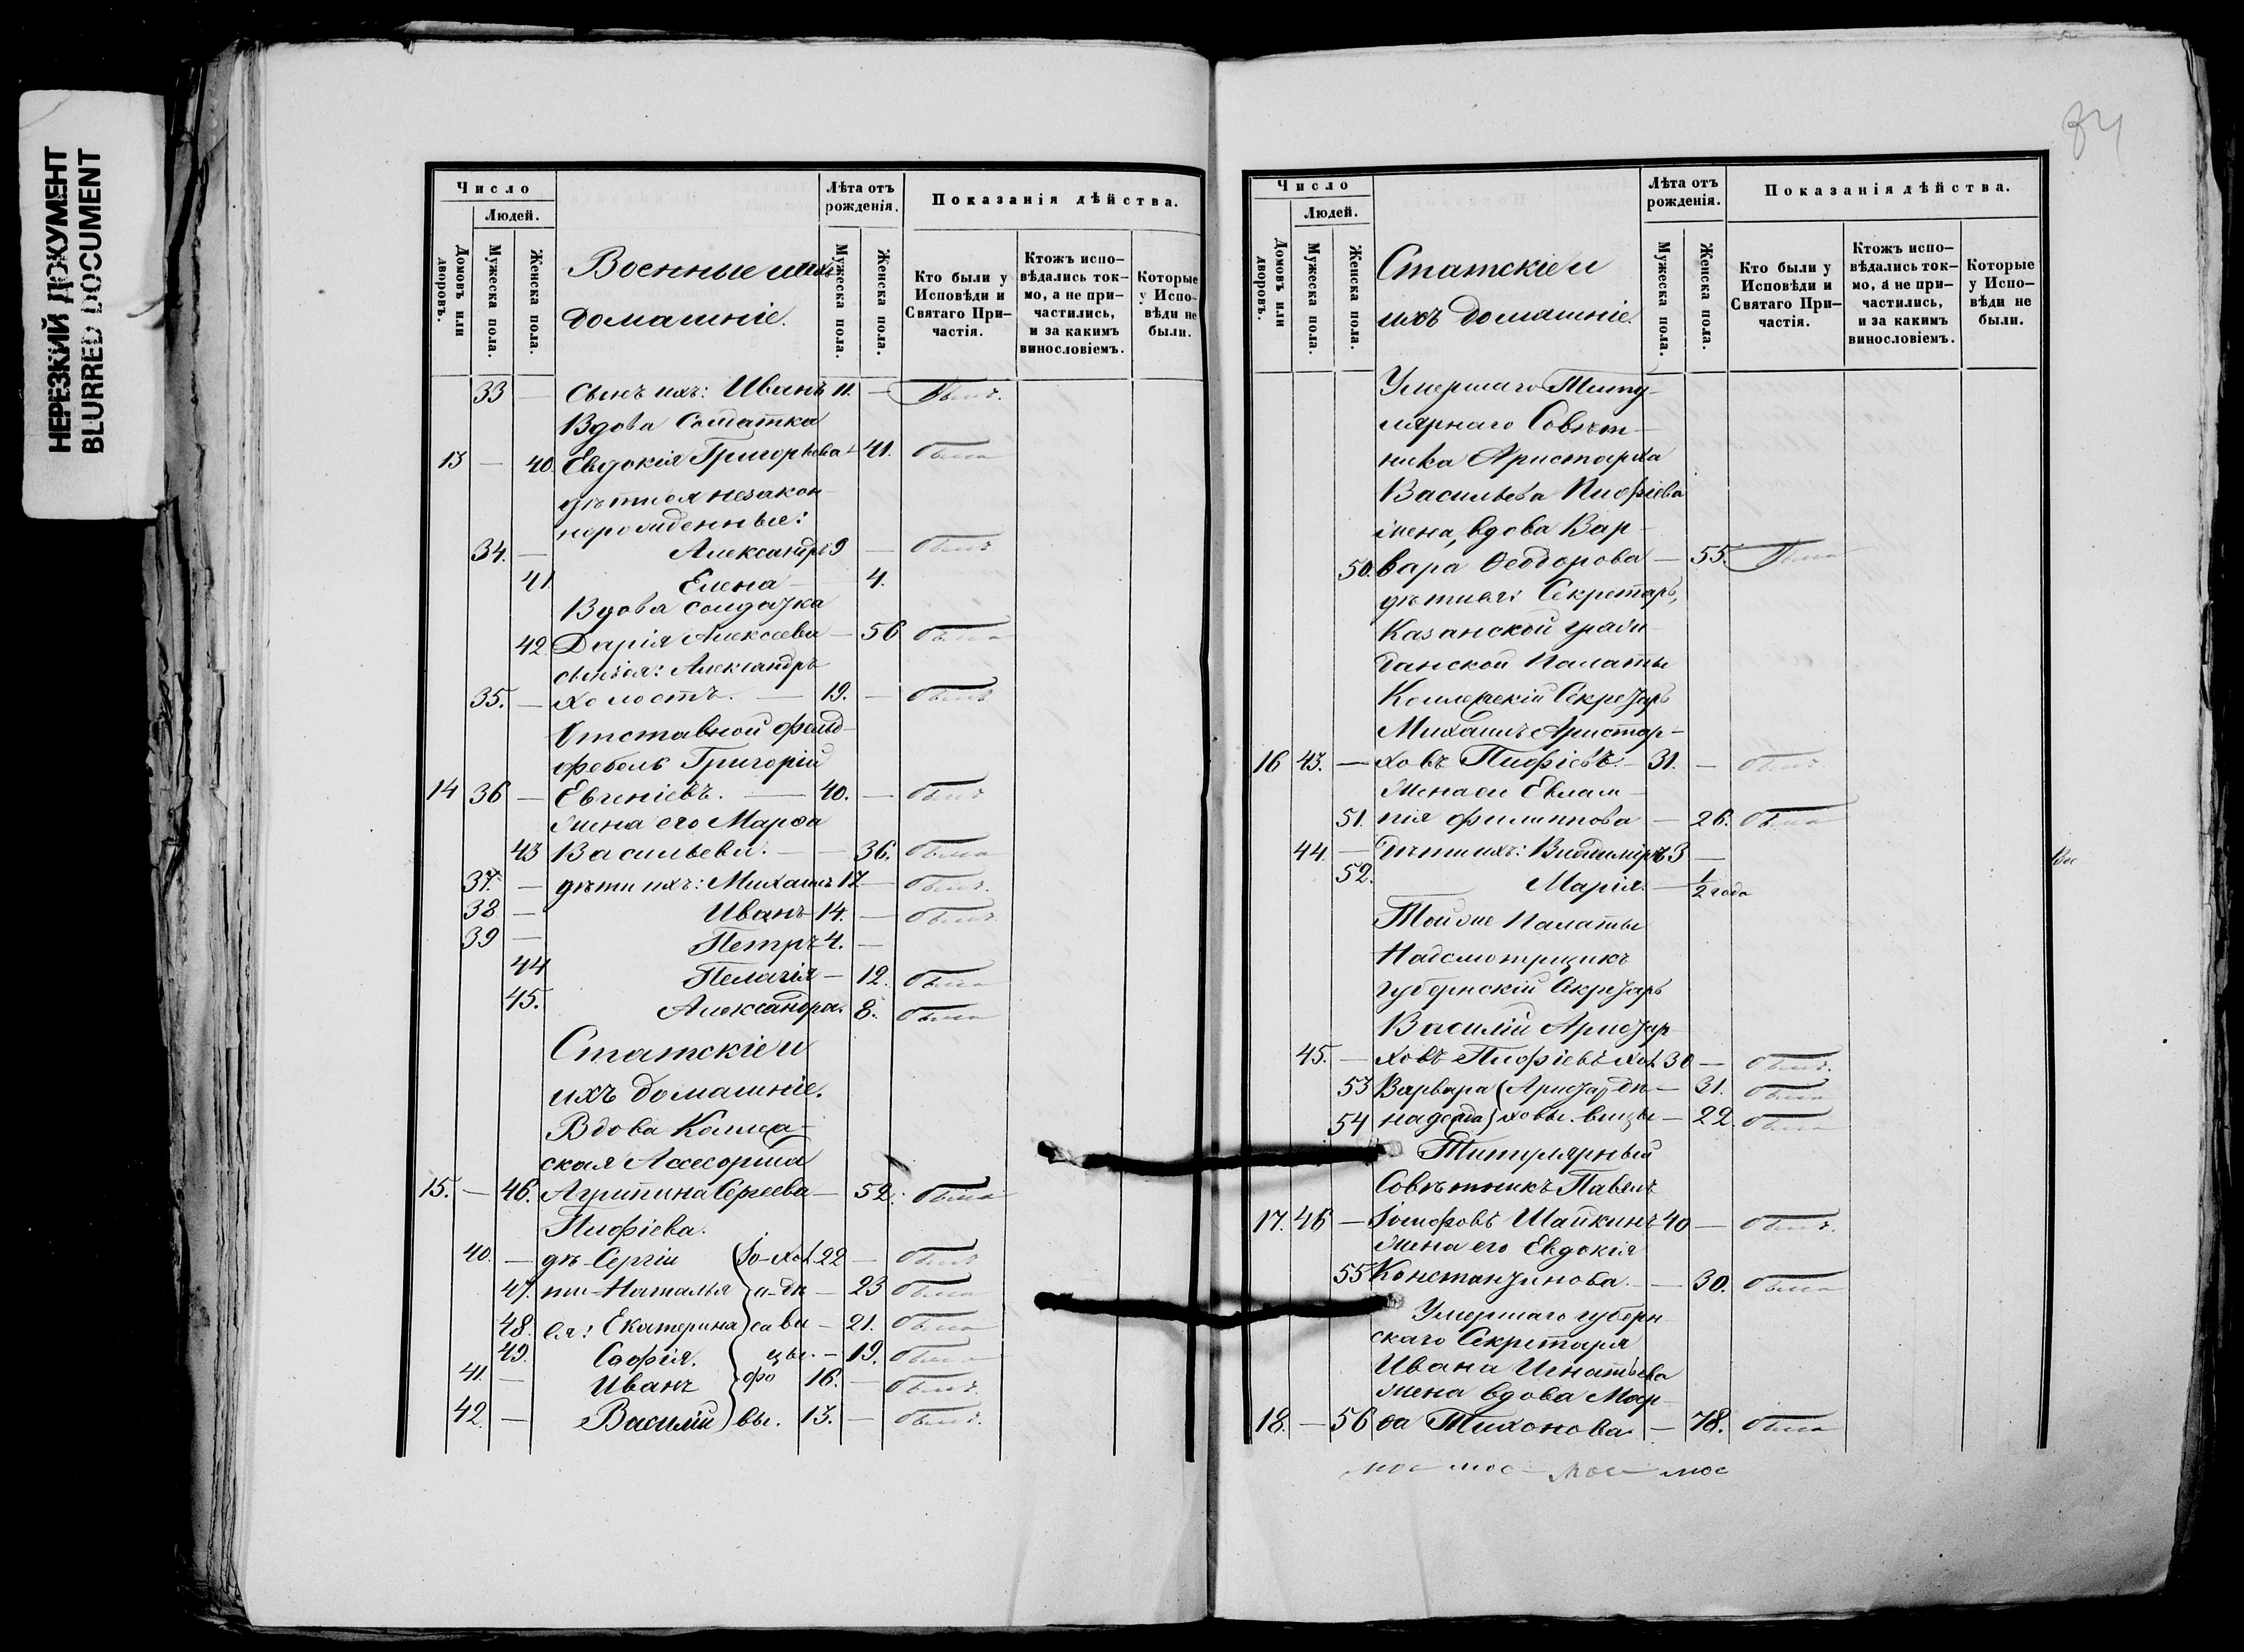 НЕРЕЗКИЙ ДОКУМЕНТ
BLURRED DOCUMENT
Число
Людей.
Домовъ или дворовъ.
Мужеска пола.
Женска пола.
Военные и ихъ
домашніе.
Лѣта отъ рожденія.
Мужеска пола.
Женска пола.
Показанія дѣйства.
Кто были у Исповѣди и Святаго Причастія.
Ктожъ исповѣдались токмо, а не причастились, и за какимъ винословіемъ.
Которые у Исповѣди не были.
33 — Сынъ ихъ: Иванъ 11. — былъ.
Вдова Солдатка
13 — 40. Евдокія Григорьева — 41. была
дѣти ея незакон
норожденные:
34. — Александръ 9 — былъ
41. Елена — 4.
Вдова солдатка
42. Дарія Алексѣева — 56 была
сынъ ея: Александръ
35. — холостъ. — 19. — былъ
Отставной фельд-
фебель Григорій
14 36 — Евгеніевъ. — 40. — былъ
жена его Марѳа
43 Васильева. — 36. была
37. — дѣти ихъ: Михаилъ 17. — былъ.
38 — Иванъ 14. — былъ.
39 — Петръ 4. —
44 Пелагія — 12. была
45. Александра. 8. была
Статскіе и
ихъ домашніе.
Вдова Коллеж-
ская Ассесорша
15. — 46. Агрипина Сергеева — 52. была
Пифіева.
40. — дѣ- Сергій 22 — былъ
47. ти- Наталья — 23 была
48. ея: Екатерина — 21. была
49. Софія. — 19. была
41. — Иванъ 16. — былъ.
42. — Василій вы. 13. — былъ.
84
Число
Людей.
Домовъ или дворовъ.
Мужеска пола.
Женска пола.
Статскіе и
ихъ домашніе.
Лѣта отъ рожденія.
Мужеска пола.
Женска пола.
Показанія дѣйства.
Кто были у Исповѣди и Святаго Причастія.
Ктожъ исповѣдались токмо, а не причастились, и за какимъ винословіемъ.
Которые у Исповѣди не были.
Умершаго Титу-
лярнаго Совѣт-
ника Аристарха
Васильева Пифіева
жена, вдова Вар-
50. вара Ѳеодорова — 55. была
дѣти ея: Секретарь,
Казанской граж
данской Палаты
Коллежскій Секретарь
Михаилъ Аристар-
16 43. — ховъ Пифіевъ. — 31. — былъ
Жена его Евлам-
51. пія Филиппова — 26. была
44. — Дѣти ихъ: Владиміръ 3 —
52. Марія. — 1/2 года
Той же Палаты
Надсмотрщикъ
Губернскій Секретарь
Василій Аристар
45. — ховъ Пифіевъ хол. 30 — былъ.
53 Варвара (Аристар дѣ — 31. была
54 Надежда) ховы. вицы — 22 была
Титулярный
Совѣтникъ Павелъ
17. 46 — Іосифовъ Шайкинъ 40 — былъ.
Жена его Евдокія
55 Константинова. — 30. была
Умершаго губерн
скаго Секретаря
Ивана Игнатьева
жена вдова Мар
18. — 56 ѳа Тихонова. — 78. была